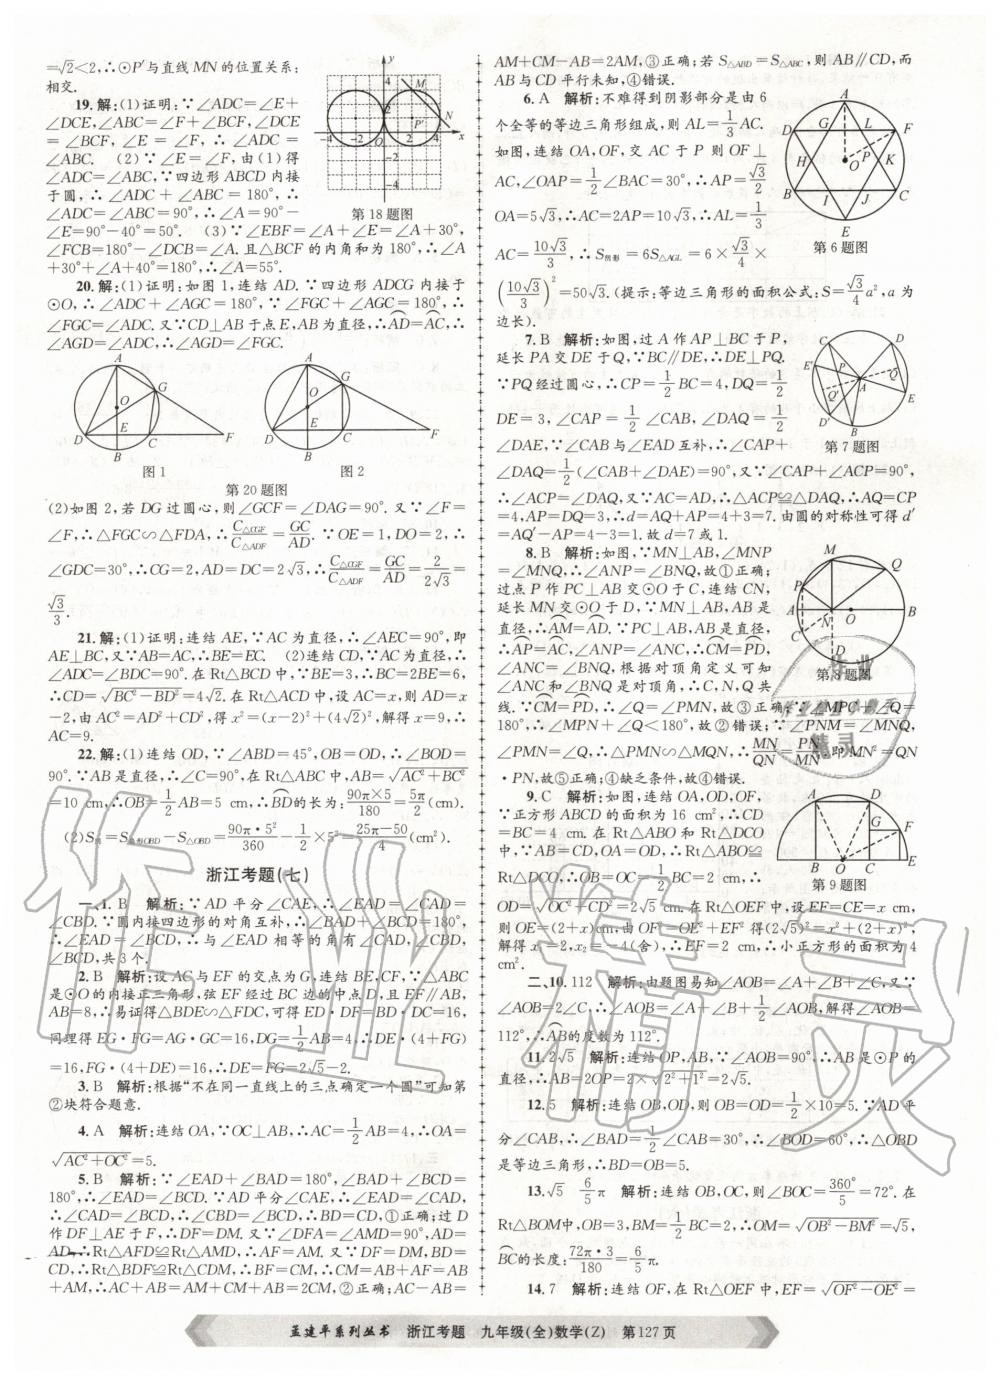 =√2<2,∴⊙P′与直线MN的位置关系:
相交.
19.解:(1)证明:∵∠ADC=∠E+
∠DCE,∠ABC=∠F+∠BCF,∠DCE
=∠BCF,∠E=∠F,∴∠ADC=
∠ABC. (2)∵∠E=∠F,由(1)得
∠ADC=∠ABC,∵四边形ABCD内接
于圆,∴∠ADC+∠ABC=180°,
∴∠ADC=∠ABC=90°,∴∠A=90°-
∠E=90°-40°=50°. (3)∵∠EBF=∠A+∠E=∠A+30°,
∠FCB=180°-∠DCB=∠A.且△BCF的内角和为180°,∴∠A
+30°+∠A+40°=180°,∴∠A=55°.
第18题图
20.解:(1)证明:如图1,连结AD.∵四边形ADCG内接于
⊙O,∴∠ADC+∠AGC=180°,∵∠FGC+∠AGC=180°,∴
∠FGC=∠ADC.又∵CD⊥AB于点E,AB为直径,∴AD=AC,∴
∠AGD=∠ADC,∴∠AGD=∠FGC.
图1 图2
第20题图
(2)如图2,若DG过圆心,则∠GCF=∠DAG=90°.又∵∠F=
∠F,∴△FGC∽△FDA,∴C△CGF/C△ADF=GC/AD.∵OE=1,DO=2,∴
∠GDC=30°,∴CG=2,AD=DC=2√3,∴C△CGF/C△ADF=GC/AD=2/2√3=
√3/3.
21.解:(1)证明:连结AE,∵AC为直径,∴∠AEC=90°,即
AE⊥BC,又∵AB=AC,∴BE=EC. (2)连结CD,∵AC为直径,
∴∠ADC=∠BDC=90°.在Rt△BCD中,∵BE=3,∴BC=2BE=6,
∴CD=√BC²-BD²=4√2.在Rt△ACD中,设AC=x,则AD=x
-2,由AC²=AD²+CD²,得x²=(x-2)²+(4√2)²,解得x=9,∴
AC=9.
22.解:(1)连结OD,∵∠ABD=45°,OB=OD,∴∠BOD=
90°.∵AB是直径,∴∠C=90°,在Rt△ABC中,AB=√AC²+BC²
=10 cm,∴OB=1/2AB=5 cm,∴BD的长为:90π×5/180=5π/2(cm).
(2)S阴=S扇形OBD-S△OBD=90π·5²/360-1/2×5²=25π-50/4(cm²).
浙江考题(七)
一、1. B 解析:∵AD平分∠CAE,∴∠EAD=∠CAD=
∠CBD.∵圆内接四边形的对角互补,∴∠BAD+∠BCD=180°,
∴∠EAD=∠BCD,∴与∠EAD相等的角有∠CAD,∠CBD,
∠BCD,共3个.
2. B 解析:设AC与EF的交点为G,连结BE,CF,∵△ABC
是⊙O的内接正三角形,弦EF经过BC边的中点D,且EF∥AB,
AB=8,∴易证得△BDE∽△FDC,可得ED·DF=BD·DC=16,
同理得EG·FG=AG·GC=16,DG=1/2AB=4,∴DE·(4+FG)
=16,FG·(4+DE)=16,∴DE=FG=2√5-2.
3. B 解析:根据“不在同一直线上的三点确定一个圆”可知第
②块符合题意.
4. A 解析:连结OA,∵OC⊥AB,∴AC=1/2AB=4,∴OA=
√AC²+OC²=5.
5. B 解析:∵∠EAD+∠BAD=180°,∠BAD+∠BCD=
180°,∴∠EAD=∠BCD.∵AD平分∠CAE,∴∠EAD=∠CAD,
∴∠CAD=∠BCD,∴∠CBD=∠BCD,∴BD=CD,①正确;过D
作DF⊥AE于F,∴DF=DM.又∵∠DFA=∠AMD=90°,AD=
AD,∴Rt△AFD≌Rt△AMD,∴AF=AM.又∵DF=DM,BD=
CD,∴Rt△BDF≌Rt△CDM,∴BF=CM,∴CM=AB+AF=AB
+AM,∴AC+AB=AM+CM+AB=2CM,②正确;AC-AB=
AM+CM-AB=2AM,③正确;若S△ABD=S△ABC,则AB∥CD,而
AB与CD平行未知,④错误.
6. A 解析:不难得到阴影部分是由6
个全等的等边三角形组成,则AL=1/3AC.
如图,连结OA,OF,交AC于P则OF⊥
AC,∠OAP=1/2∠BAC=30°,∴AP=√3/2
OA=5√3,∴AC=2AP=10√3,∴AL=1/3
AC=10√3/3,∴S阴影=6S△AGL=6×√3/4×
(10√3/3)²=50√3.(提示:等边三角形的面积公式:S=√3/4a²,a为
边长).
第6题图
7. B 解析:如图,过A作AP⊥BC于P,
延长PA交DE于Q,∵BC∥DE,∴DE⊥PQ.
∵PQ经过圆心,∴CP=1/2BC=4,DQ=1/2
DE=3,∠CAP=1/2∠CAB,∠DAQ=1/2
∠DAE,∵∠CAB与∠EAD互补,∴∠CAP+
∠DAQ=1/2(∠CAB+∠DAE)=90°,又∵∠CAP+∠ACP=90°,
∴∠ACP=∠DAQ,又∵AC=AD,∴△ACP≌△DAQ,∴AQ=CP
=4,AP=DQ=3,∴d=AQ+AP=4+3=7.由圆的对称性可得d′
=AQ′-AP=4-3=1.故d=7或1.
第7题图
8. B 解析:如图,∵MN⊥AB,∠MNP
=∠MNQ,∴∠ANP=∠BNQ,故①正确;
过点P作PC⊥AB交⊙O于C,连结CN,
延长MN交⊙O于D,∵MN⊥AB,AB是
直径,∴AM=AD.∵PC⊥AB,AB是直径,
∴AP=AC,∠ANP=∠ANC,∴CM=PD,
∠ANC和∠BNQ是对顶角,∴C,N,Q共
线.∵CM=PD,∴∠Q=∠PMN,故③正确;∵∠MPC+∠Q=
180°,∴∠MPN+∠Q<180°,故②错误;∵∠PNM=∠MNQ,
∠PMN=∠Q,∴△PMN∽△MQN,∴MN/QN=PN/MN,即MN²=QN
·PN,故⑤正确;④缺乏条件,故④错误.
第8题图
9. C 解析:如图,连结OA,OD,OF,
∵正方形ABCD的面积为16 cm²,∴CD
=BC=4 cm.在Rt△ABO和Rt△DCO
中,∵AB=CD,OA=OD,∴Rt△ABO≌
Rt△DCO,∴OB=OC=1/2BC=2 cm,∴
OD=√OC²+CD²=2√5 cm.在Rt△OEF中,设EF=CE=x cm,
则OE=(2+x)cm,由OF²=OE²+EF²得(2√5)²=x²+(2+x)²,
解得x₁=2,x₂=-4(舍),∴EF=2 cm,∴小正方形的面积为4
cm².
第9题图
二、10. 112 解析:由题图易知∠AOB=∠A+∠B+∠C,又∵
∠AOB=2∠C,∴∠AOB=∠A+∠B+1/2∠AOB,解得∠AOB=
112°,∴AB的度数为112°.
11. 2√5 解析:连结OP,AB,∵∠AOB=90°,∴AB是⊙P的
直径,∴AB=2OP=2×√2²+1²=2√5.
12. 5 解析:连结OB,OD,则OB=OD=1/2×10=5.∵AD平
分∠CAB,∴∠BAD=1/2∠CAB=30°,∴∠BOD=60°,∴△OBD
是等边三角形,∴BD=OB=5.
13. √5 6/5π 解析:连结OB,OC,则∠BOC=360°/5=72°.在
Rt△BOM中,OB=3,BM=1/2BC=2,∴OM=√OB²-BM²=√5,
BC的长度:72π·3/180=6/5π.
14. 7 解析:连结OF,在Rt△OEF中,EF=√OF²-OE²=
孟建平系列丛书 浙江考题 九年级(全)数学(Z) 第127页